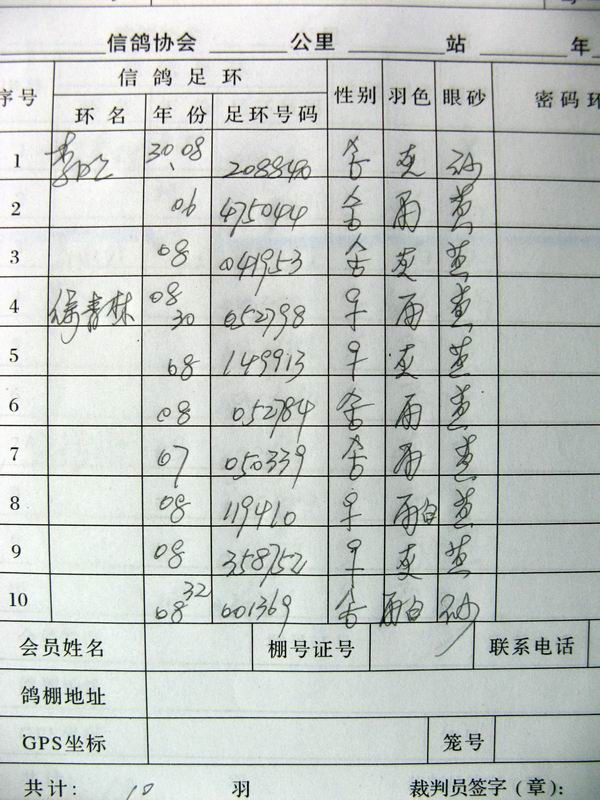 信鸽协会 公里 站 年
序号 信鸽足环 性别 羽色 眼砂 密码环
环名 年份 足环号码
1 30.08 2088490 灰 砂
2 06 4750444 雨 黄
3 08 041953 灰 黄
4 08 30 052798 ♀ 雨 黄
5 08 149913 ♀ 灰 黄
6 08 052784 雨 黄
7 07 050339 雨 黄
8 08 119410 ♀ 雨白 黄
9 08 358752 ♀ 灰 黄
10 08 32 001369 雨白 砂
会员姓名 棚号证号 联系电话
鸽棚地址
GPS坐标 笼号
共计: 10 羽 裁判员签字(章):